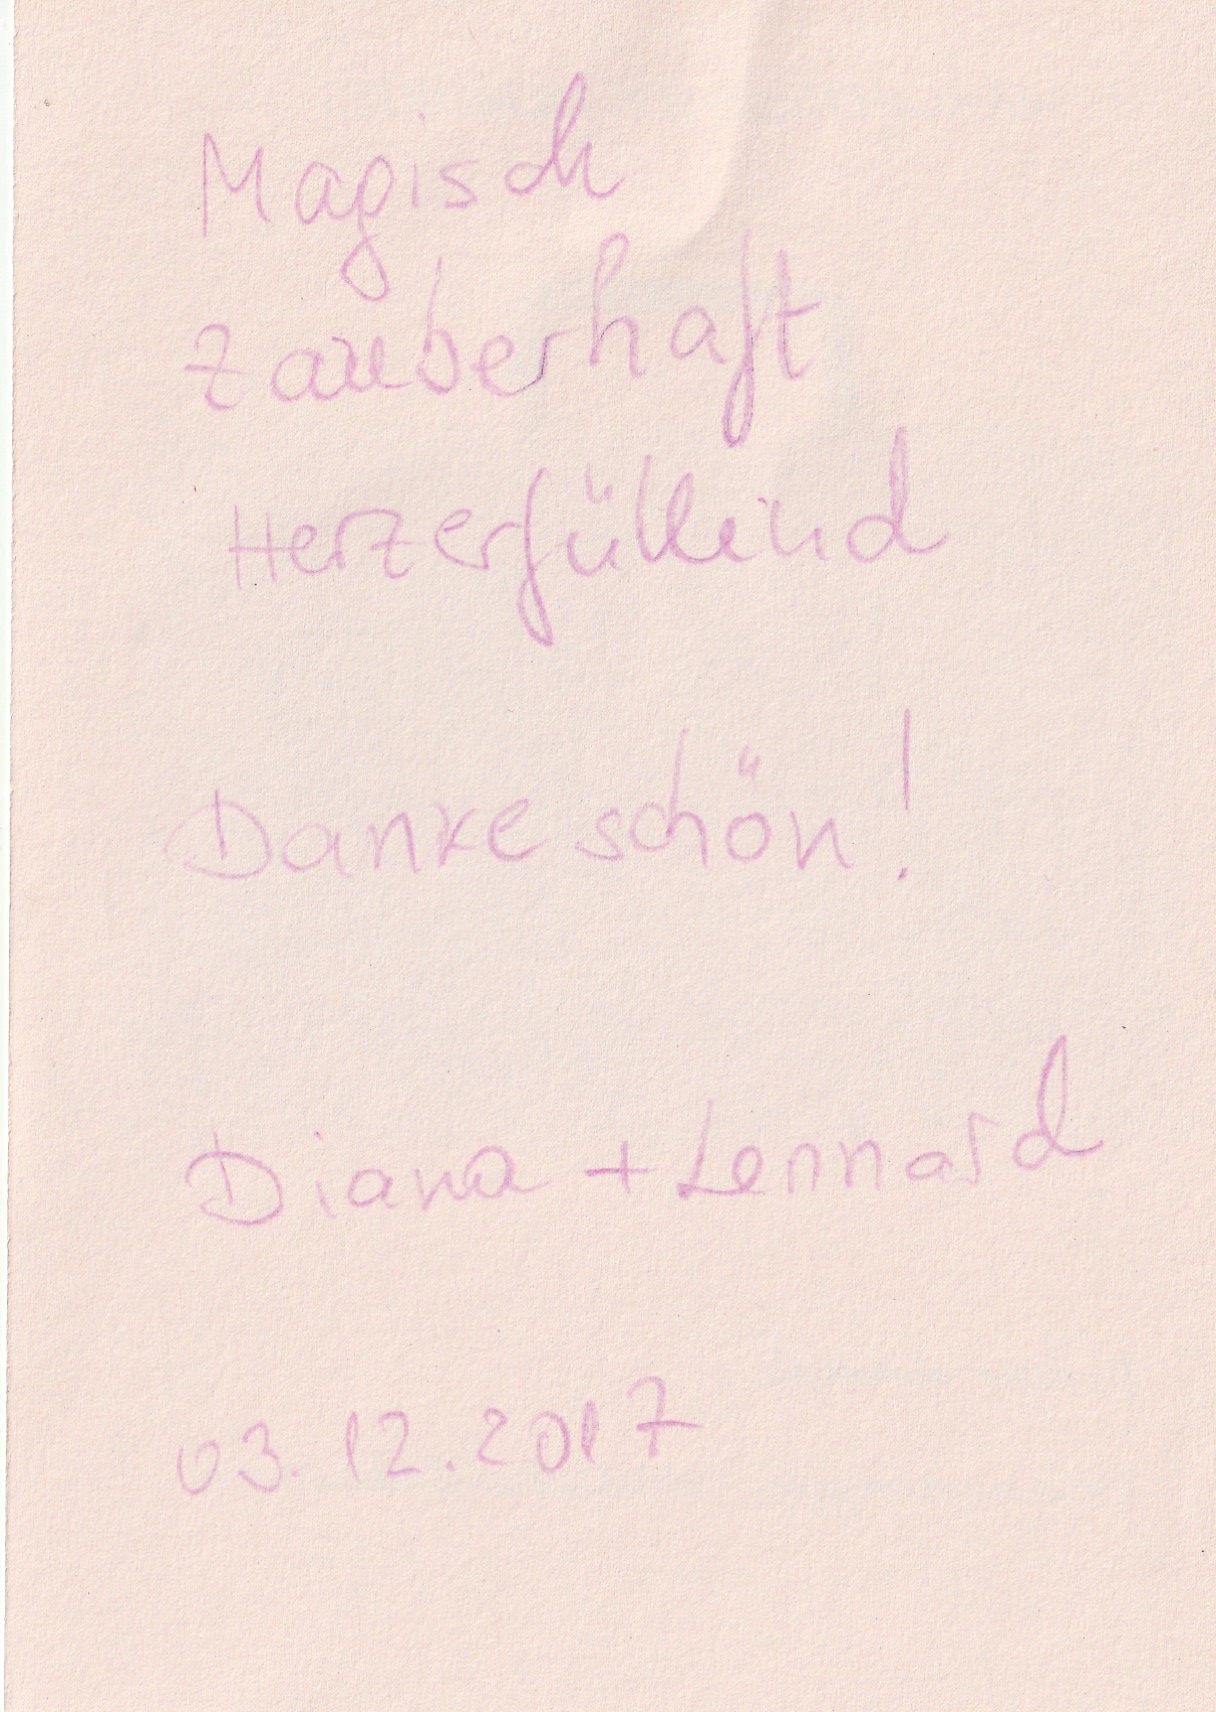 Magisch
zauberhaft
Herzerfüllend
Danke schön!
Diana + Lennard
03.12.2017